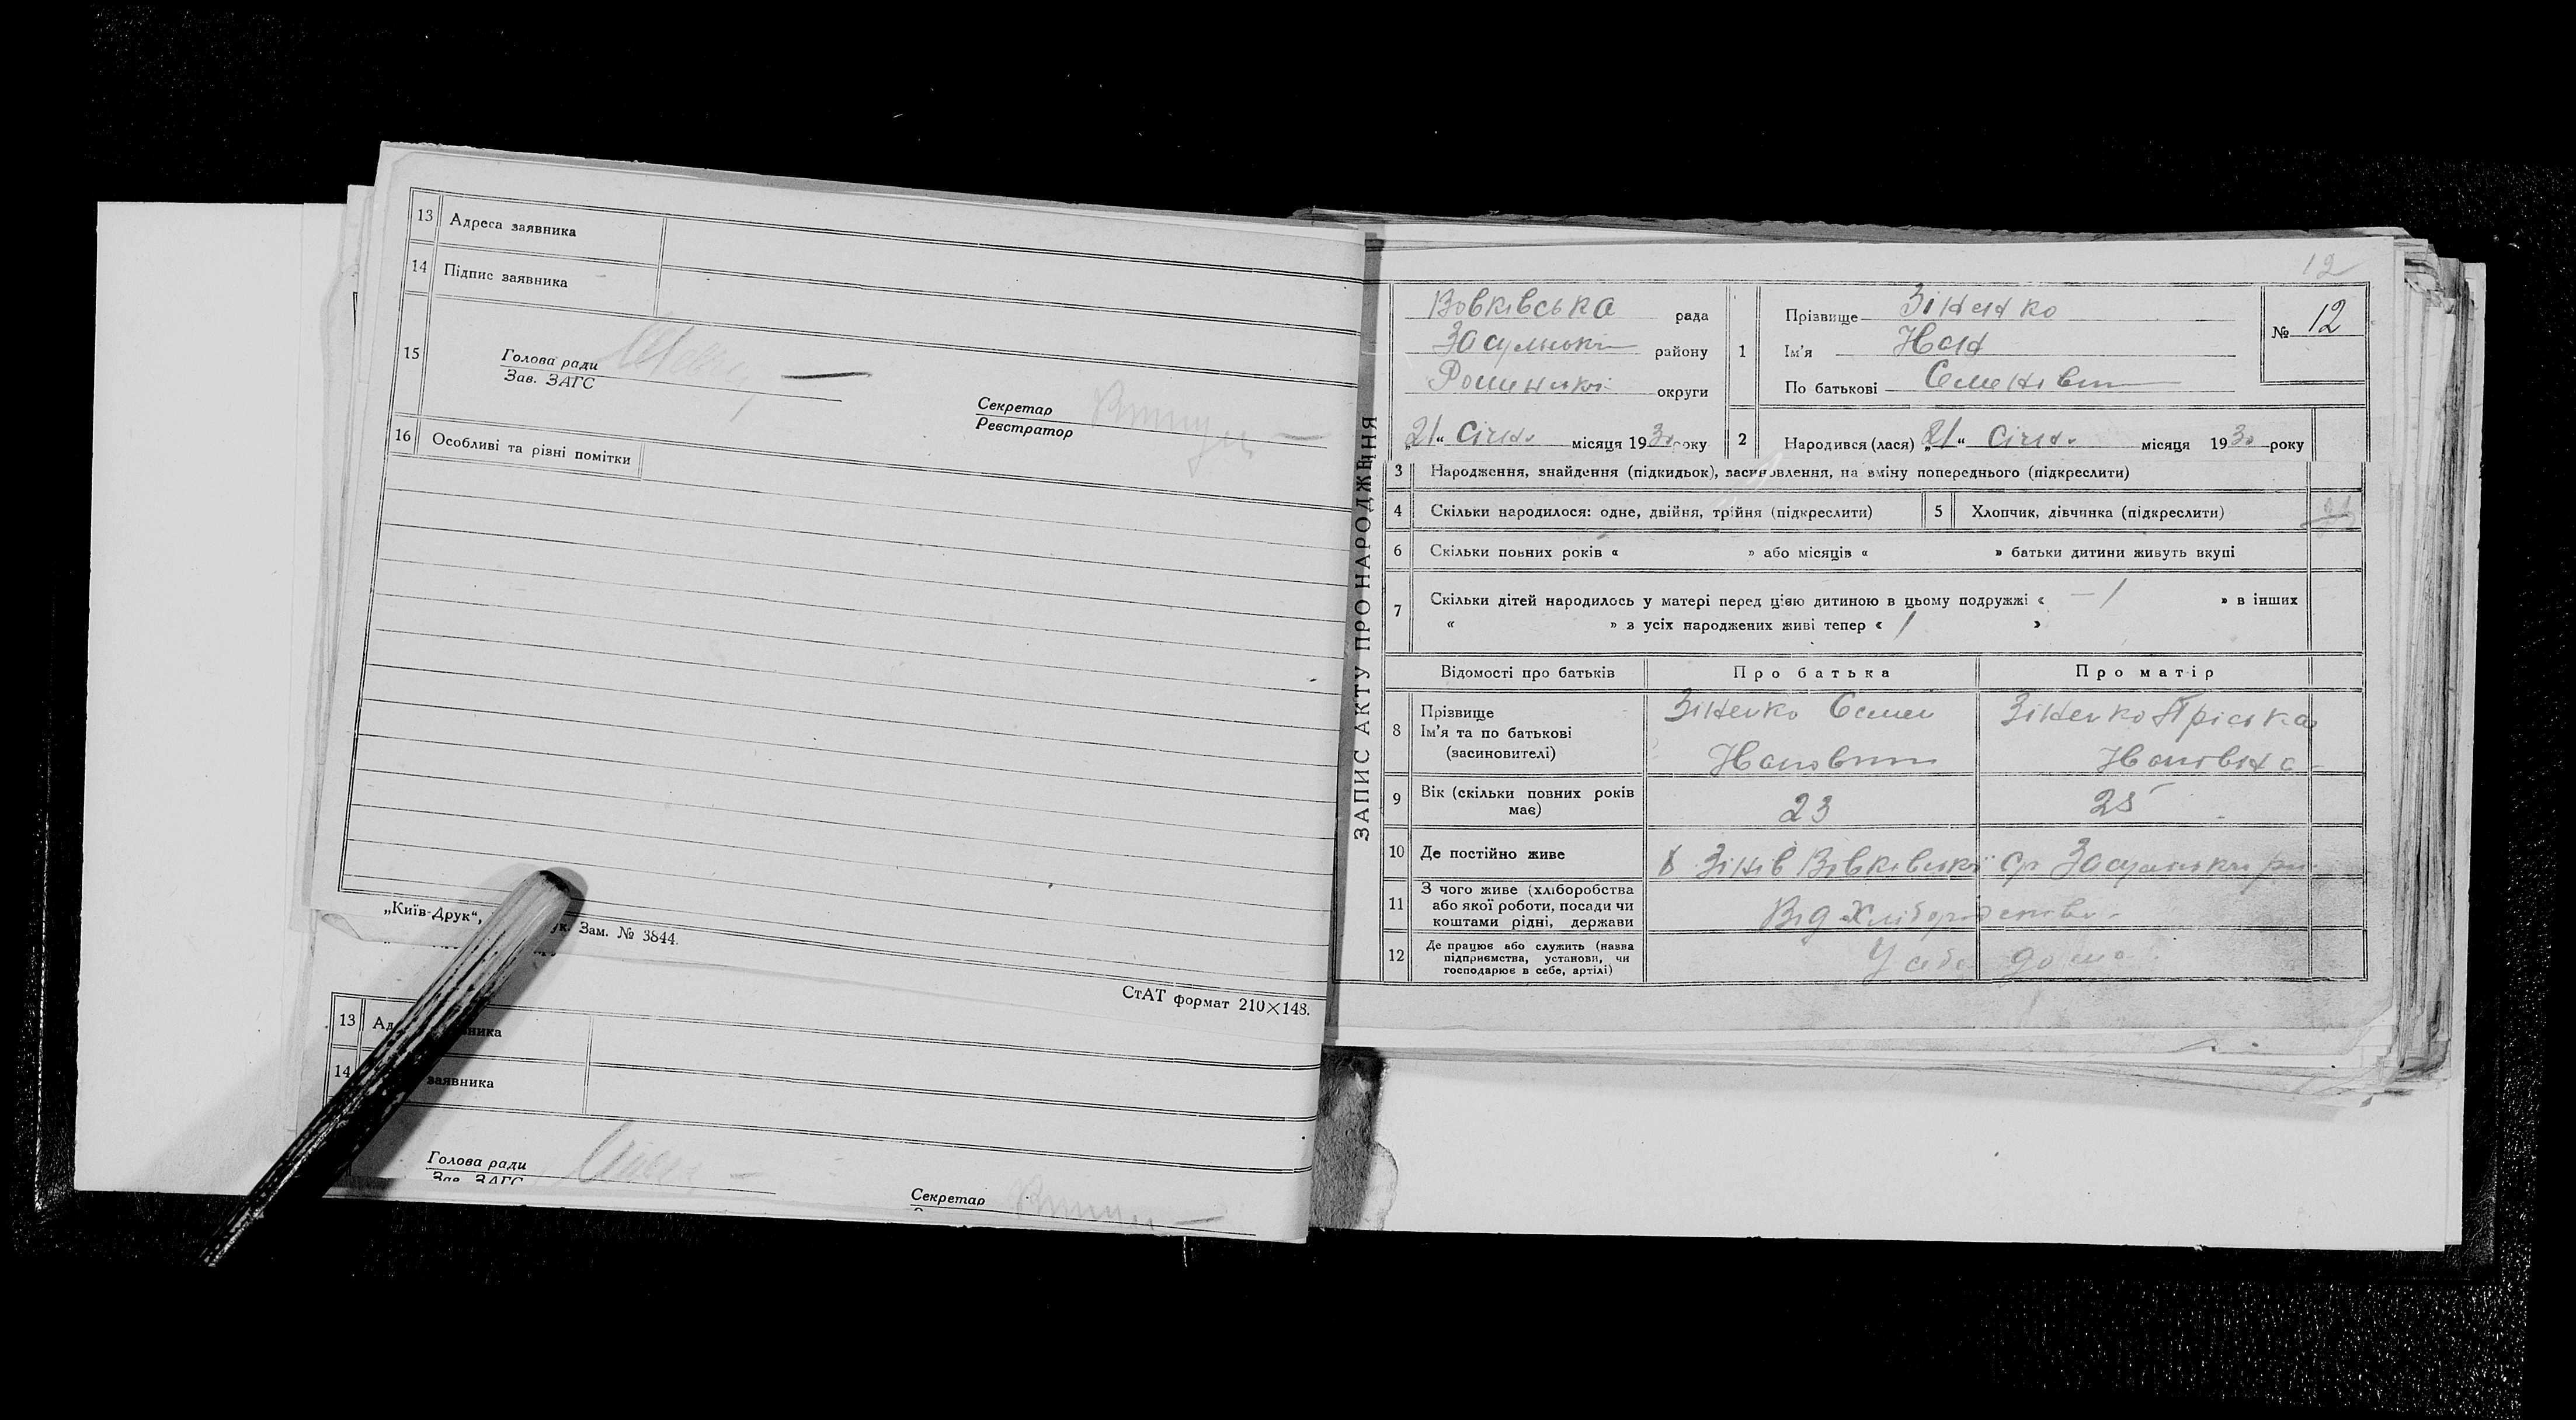 13 Адреса заявника
14 Підпис заявника
15
Голова ради
Зав. ЗАГС
Секретар
Реєстратор
16 Особливі та різні помітки
„Київ-Друк“, ук. Зам. № 3844.
СтАТ формат 210×148.
13 Ад ника
14 заявника
Голова ради
Зав. ЗАГС
Секретар
ЗАПИС АКТУ ПРО НАРОДЖЕННЯ
12
Вовківська рада
Засульськ району
Роменської округи
„21“ Січня місяця 1930 року
1 Прізвище Зіненко
Ім'я Іван
По батькові Семенович
№ 12
2 Народився (лася) „21“ Січня місяця 1930 року
3 Народження, знайдення (підкидьок), засиновлення, на зміну попереднього (підкреслити)
4 Скільки народилося: одне, двійня, трійня (підкреслити)
5 Хлопчик, дівчинка (підкреслити)
21
6 Скільки повних років « » або місяців « » батьки дитини живуть вкупі
7 Скільки дітей народилось у матері перед цією дитиною в цьому подружжі « – 1 » в інших
« » з усіх народжених живі тепер « 1 »
Відомості про батьків Про батька Про матір
8 Прізвище
Ім'я та по батькові
(засиновителі)
Зіненко Семен
Зіненко Пріська
Івановна
9 Вік (скільки повних років
має)
23 25
10 Де постійно живе
х Зінів Вовківської ср Засульськ р
11 З чого живе (хліборобства
або якої роботи, посади чи
коштами рідні, держави
Від Хліборобства
12 Де працює або служить (назва
підприємства, установи, чи
господарює в себе, артілі)
У себе дома